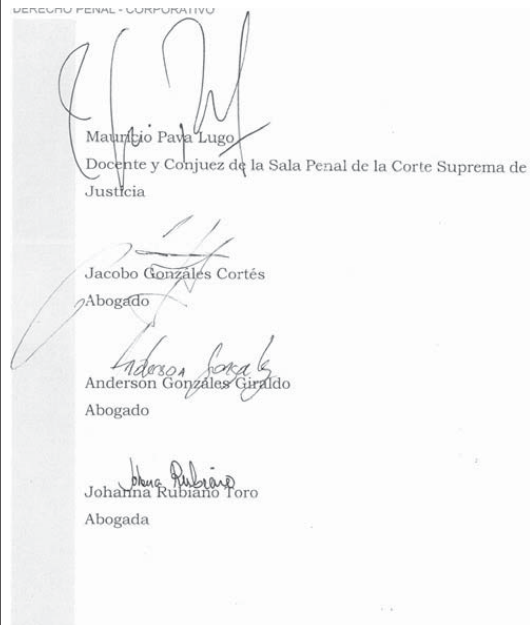 DERECHO PENAL - CORPORATIVO
Mauricio Pava Lugo
Docente y Conjuez de la Sala Penal de la Corte Suprema de
Justicia
Jacobo Gonzáles Cortés
Abogado
Anderson Gonzalez
Anderson Gonzáles Giraldo
Abogado
Johana Rubiano
Johanna Rubiano Toro
Abogada